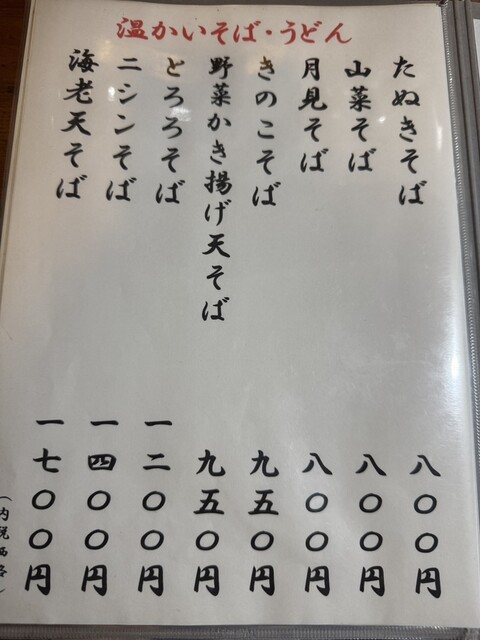 温かいそば・うどん
たぬきそば 八〇〇円
山菜そば 八〇〇円
月見そば 八〇〇円
きのこそば 九五〇円
野菜かき揚げ天そば 九五〇円
とろろそば 一二〇〇円
ニシンそば 一四〇〇円
海老天そば 一七〇〇円
（内税価格）